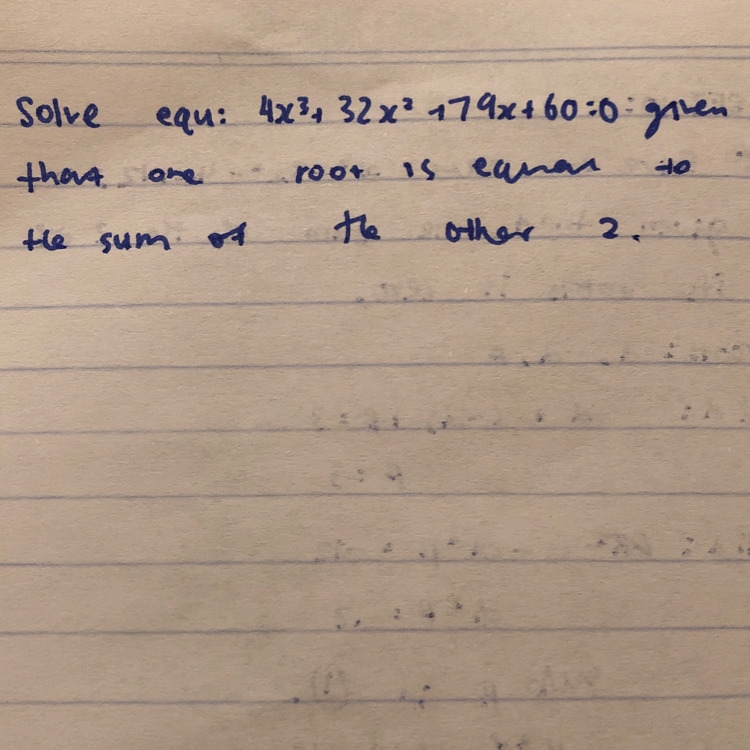 Solve equ: 4x³+ 32x² +79x+60=0: given
that one root is equal to
the sum of the other 2.